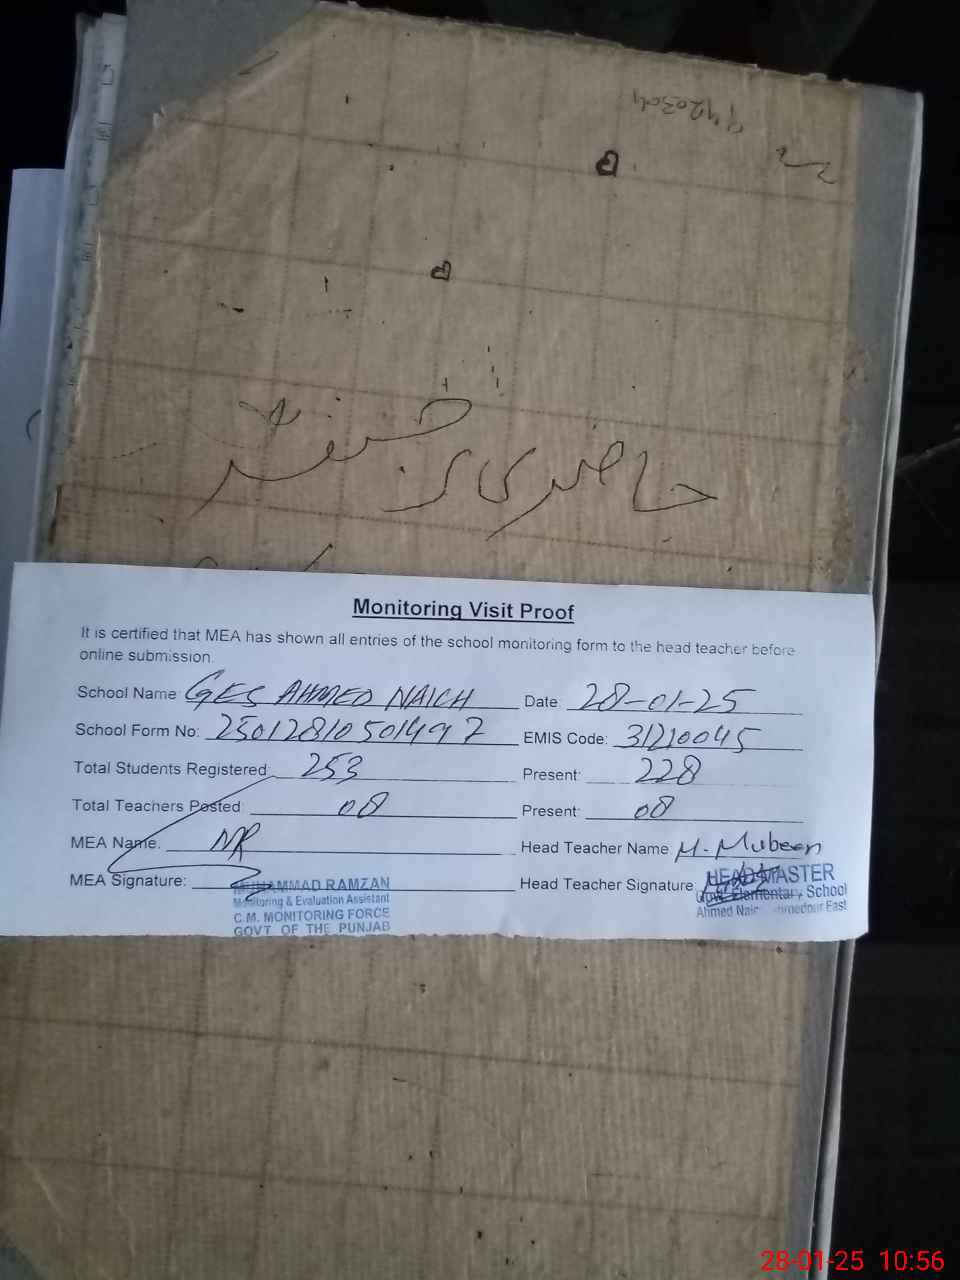 9920304
حاضری رجسٹر
Monitoring Visit Proof
It is certified that MEA has shown all entries of the school monitoring form to the head teacher before
online submission.
School Name: GES AHMED NAICH Date: 28-01-25
School Form No: 250128105014997 EMIS Code: 31210045
Total Students Registered: 253 Present: 228
Total Teachers Posted: 08 Present: 08
MEA Name: MR Head Teacher Name M. Mubeen
MEA Signature: Head Teacher Signature
MUHAMMAD RAMZAN
Monitoring & Evaluation Assistant
C.M. MONITORING FORCE
GOVT OF THE PUNJAB
HEAD MASTER
Govt. Elementary School
Ahmed Naich Ahmedpur East
28-01-25 10:56